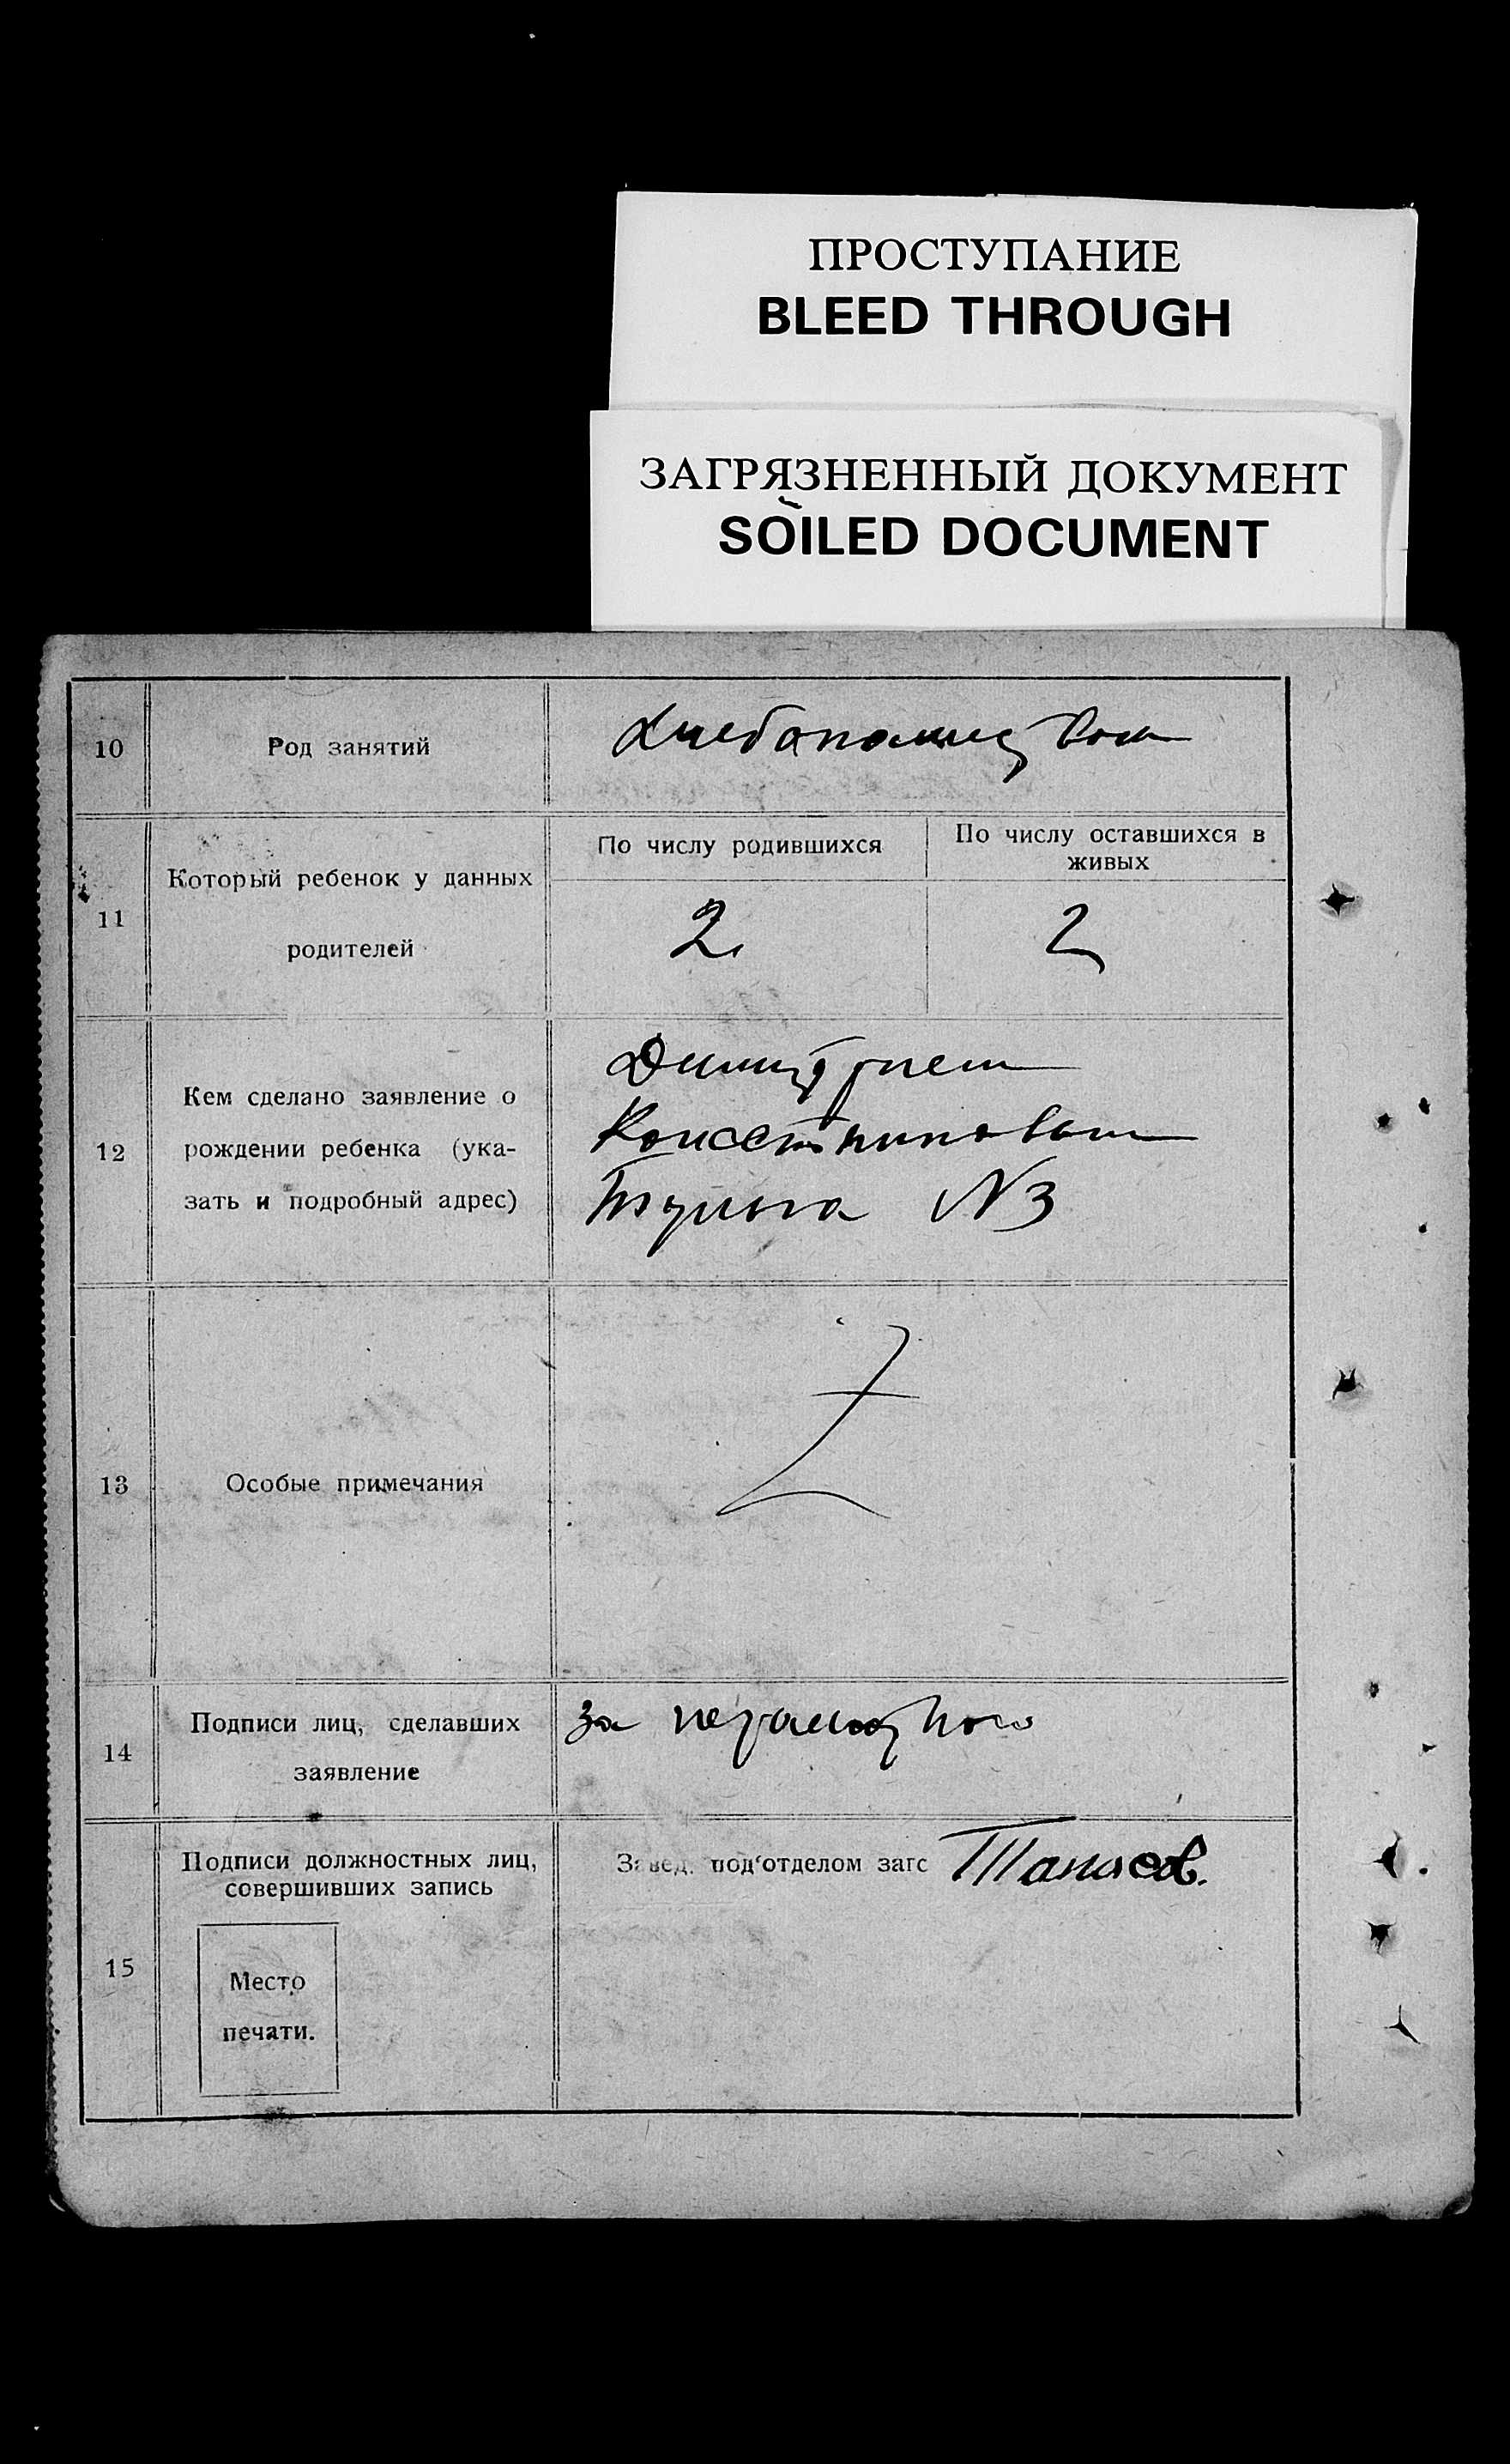 ПРОСТУПАНИЕ
BLEED THROUGH
ЗАГРЯЗНЕННЫЙ ДОКУМЕНТ
SOILED DOCUMENT
10
Род занятий
11
Который ребенок у данных
родителей
По числу родившихся
По числу оставшихся в
живых
2
2
12
Кем сделано заявление о
рождении ребенка (ука-
зать и подробный адрес)
Димитрием
№3
13
Особые примечания
Z
14
Подписи лиц, сделавших
заявление
за
15
Подписи должностных лиц,
совершивших запись
Место
печати.
Завед. под'отделом загс